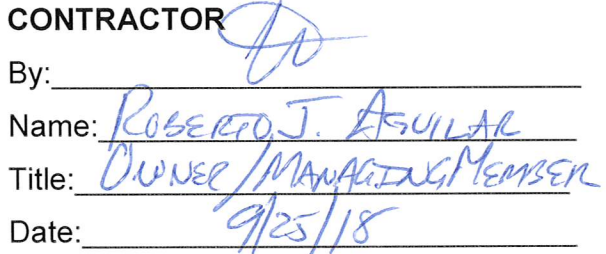 CONTRACTOR
By:
Name: ROBERTO J. AGUILAR
Title: OWNER/MANAGING MEMBER
Date: 9/25/18